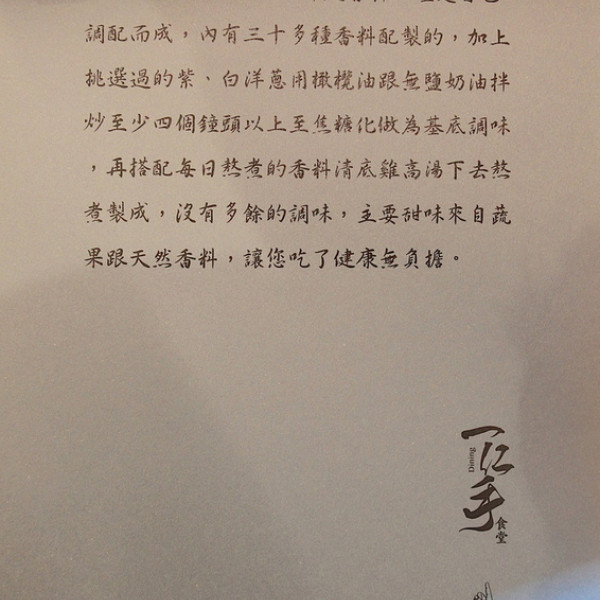 調配而成，內有三十多種香料配製的，加上
挑選過的紫、白洋蔥用橄欖油跟無鹽奶油拌
炒至少四個鐘頭以上至焦糖化做為基底調味
，再搭配每日熬煮的香料清底雞高湯下去熬
煮製成，沒有多餘的調味，主要甜味來自蔬
果跟天然香料，讓您吃了健康無負擔。
一仁手
Dining
食堂